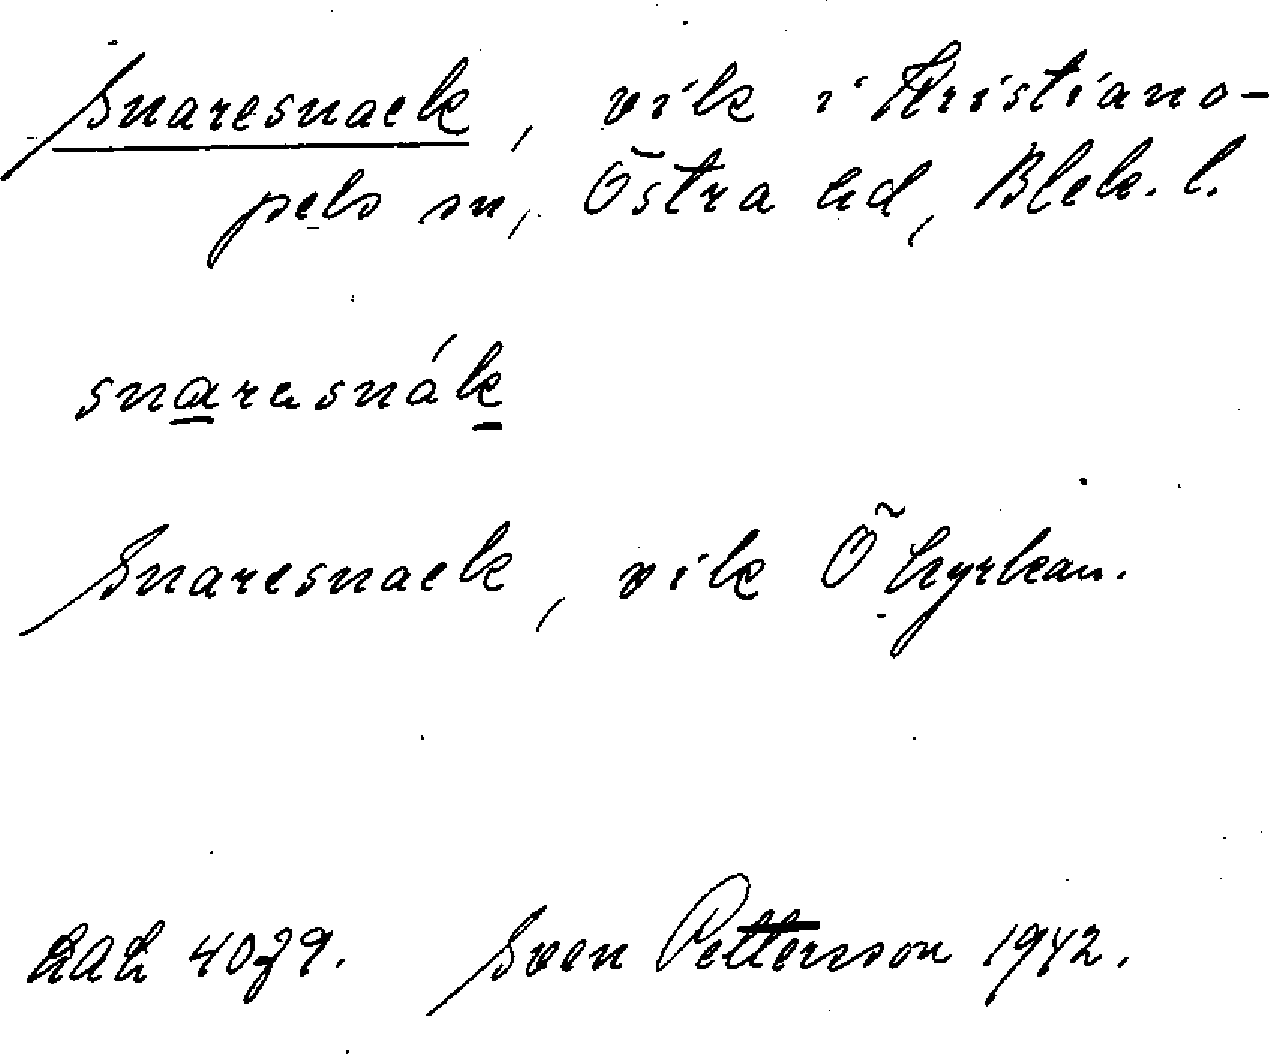 Snaresnack, vik i Kristiano-
pels sn, Östra hd, Blek. l.
snarəsnák
Snaresnack, vik Ö kyrkan.
Sven Pettersson 1942.